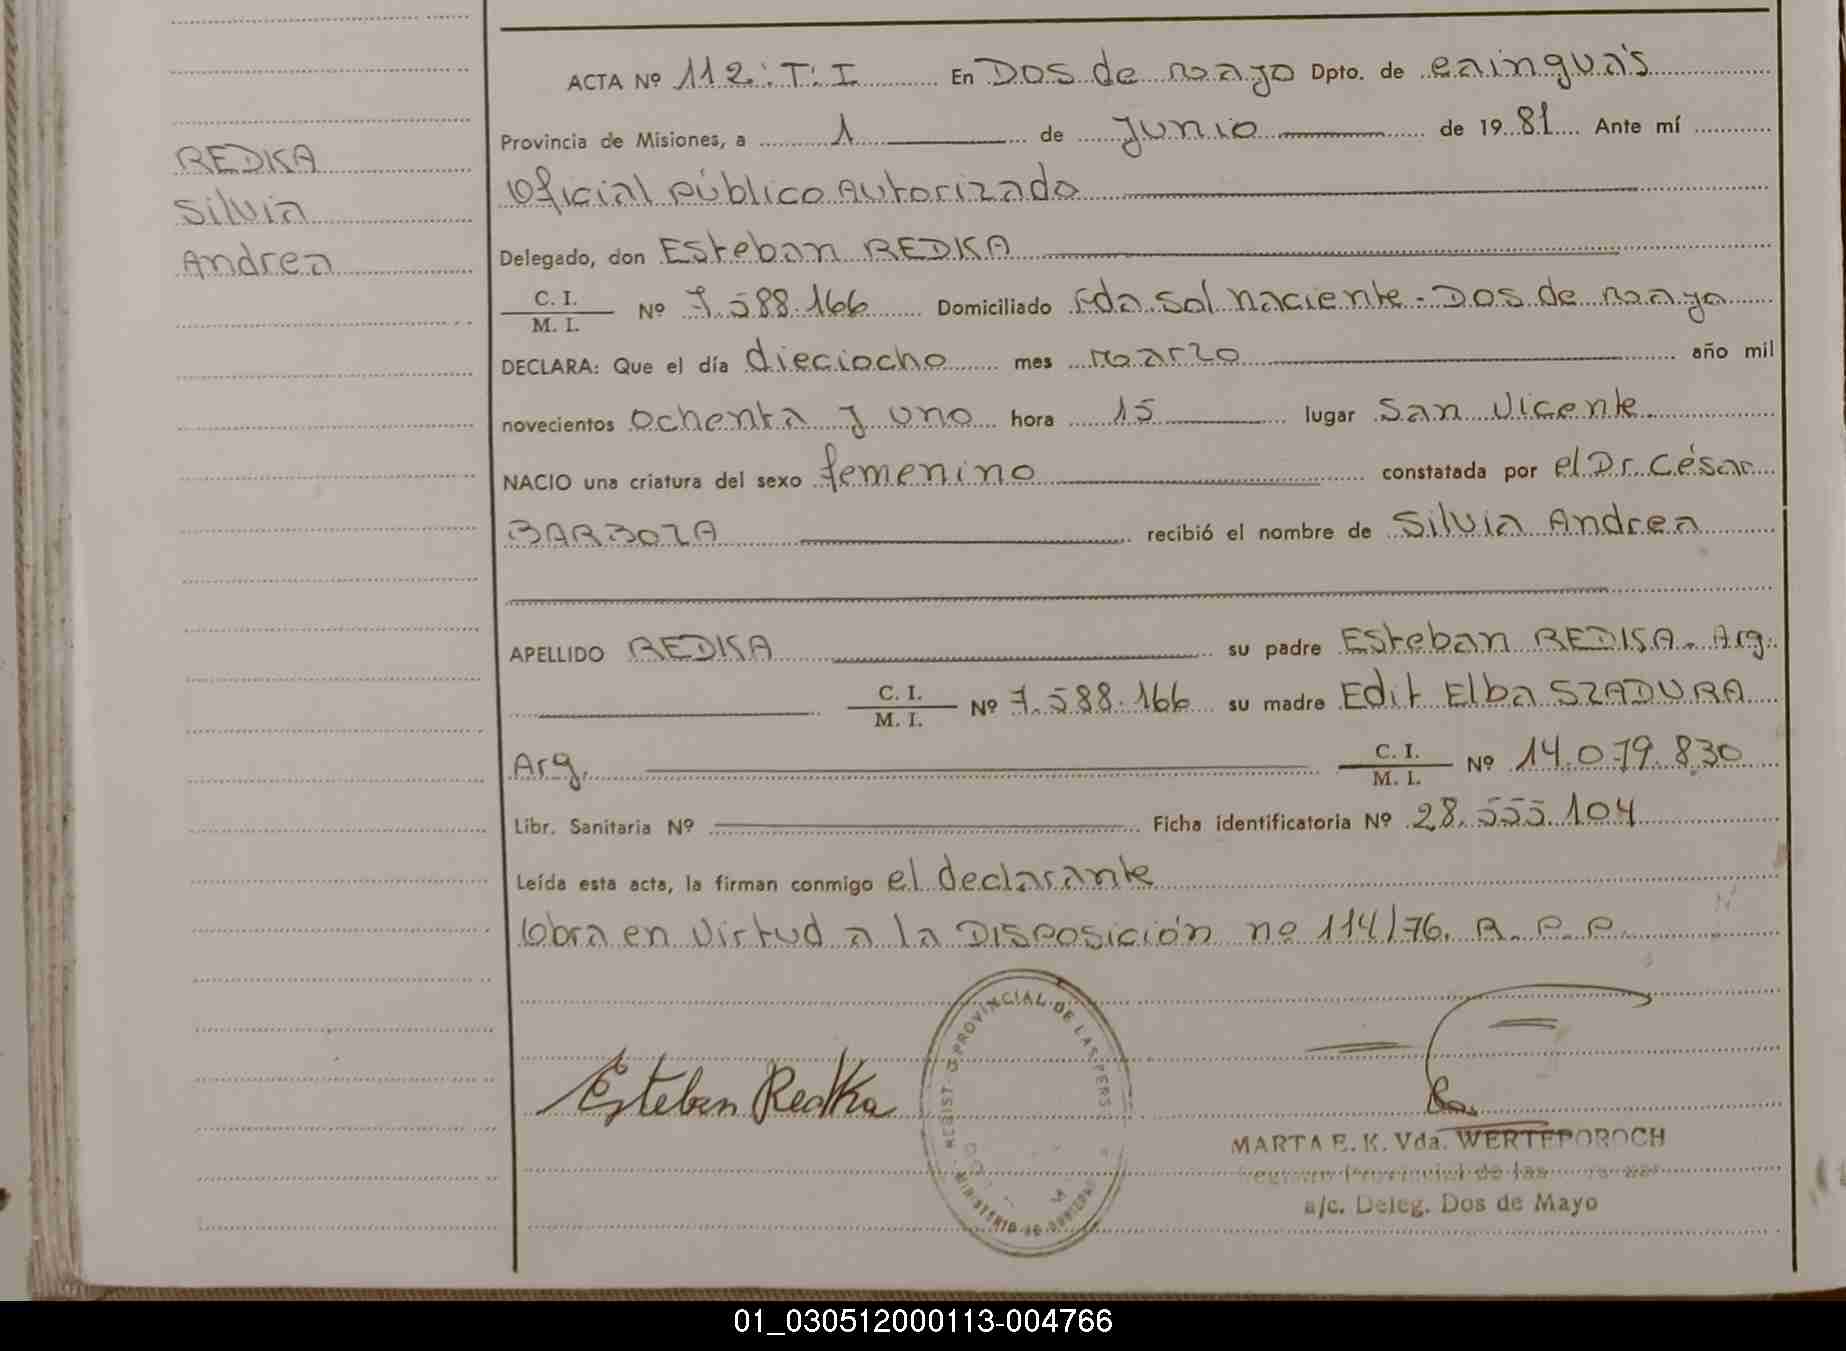 REDKA
Silvia
Andrea
ACTA Nº 112.:T:I En Dos de mayo Dpto. de Cainguás
Provincia de Misiones, a 1 de Junio de 1981 Ante mí
Oficial público Autorizado
Delegado, don Esteban REDKA
C. I.
M. I.
Nº 7.588.166 Domiciliado Fda. Sol naciente - Dos de mayo
DECLARA: Que el día dieciocho mes marzo año mil
novecientos ochenta y uno hora 15 lugar San Vicente
NACIO una criatura del sexo femenino constatada por el Dr. César
BARBOZA recibió el nombre de Silvia Andrea
APELLIDO REDKA su padre Esteban REDKA. Arg.
C. I.
M. I.
Nº 7.588.166 su madre Edit Elba SZADURA
Arg.
C. I.
M. I.
Nº 14.079.830
Libr. Sanitaria Nº Ficha identificatoria Nº 28.555.104
Leída esta acta, la firman conmigo el declarante
Obra en virtud a la Disposición nº 114/76. R. P. P.
REGIST. PROVINCIAL DE LAS PERS.
MINISTERIO DE GOBIERNO
Esteban Redka
MARTA E. K. Vda. WERTEPOROCH
Registro Provincial de las
a/c. Deleg. Dos de Mayo
01_030512000113-004766